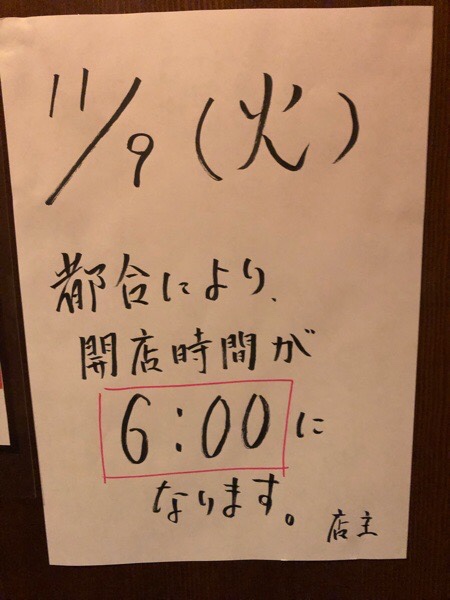 11/9(火)
都合により、
開店時間が
6:00に
なります。
店主